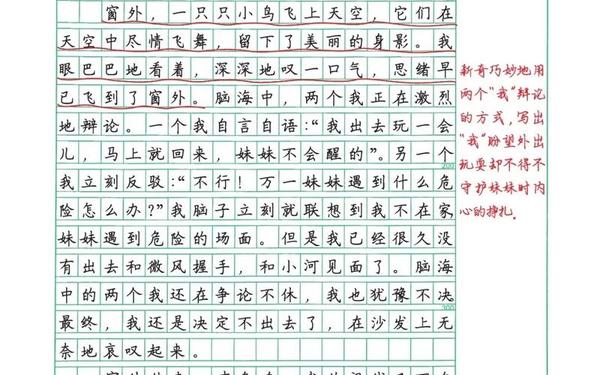 窗外，一只只小鸟飞上天空，它们在
天空中尽情飞舞，留下了美丽的身影。我
眼巴巴地看着，深深地叹一口气，思绪早
已飞到了窗外。脑海中，两个我正在激烈
地辩论。一个我自言自语：“我出去玩一会
儿，马上就回来，妹妹不会醒的”。另一个
200
我立刻反驳：“不行！万一妹妹遇到什么危
险怎么办？”我脑子立刻就联想到我不在家，
妹妹遇到危险的场面。但是我已经很久没
有出去和微风握手，和小河见面了。脑海
中的两个我还在争论不休，我也犹豫不决。
300
最终，我还是决定不出去了，在沙发上无
奈地哀叹起来。
新奇巧妙地用
两个“我”辩论
的方式，写出
“我”盼望外出
玩耍却不得不
守护妹妹时内
心的挣扎.